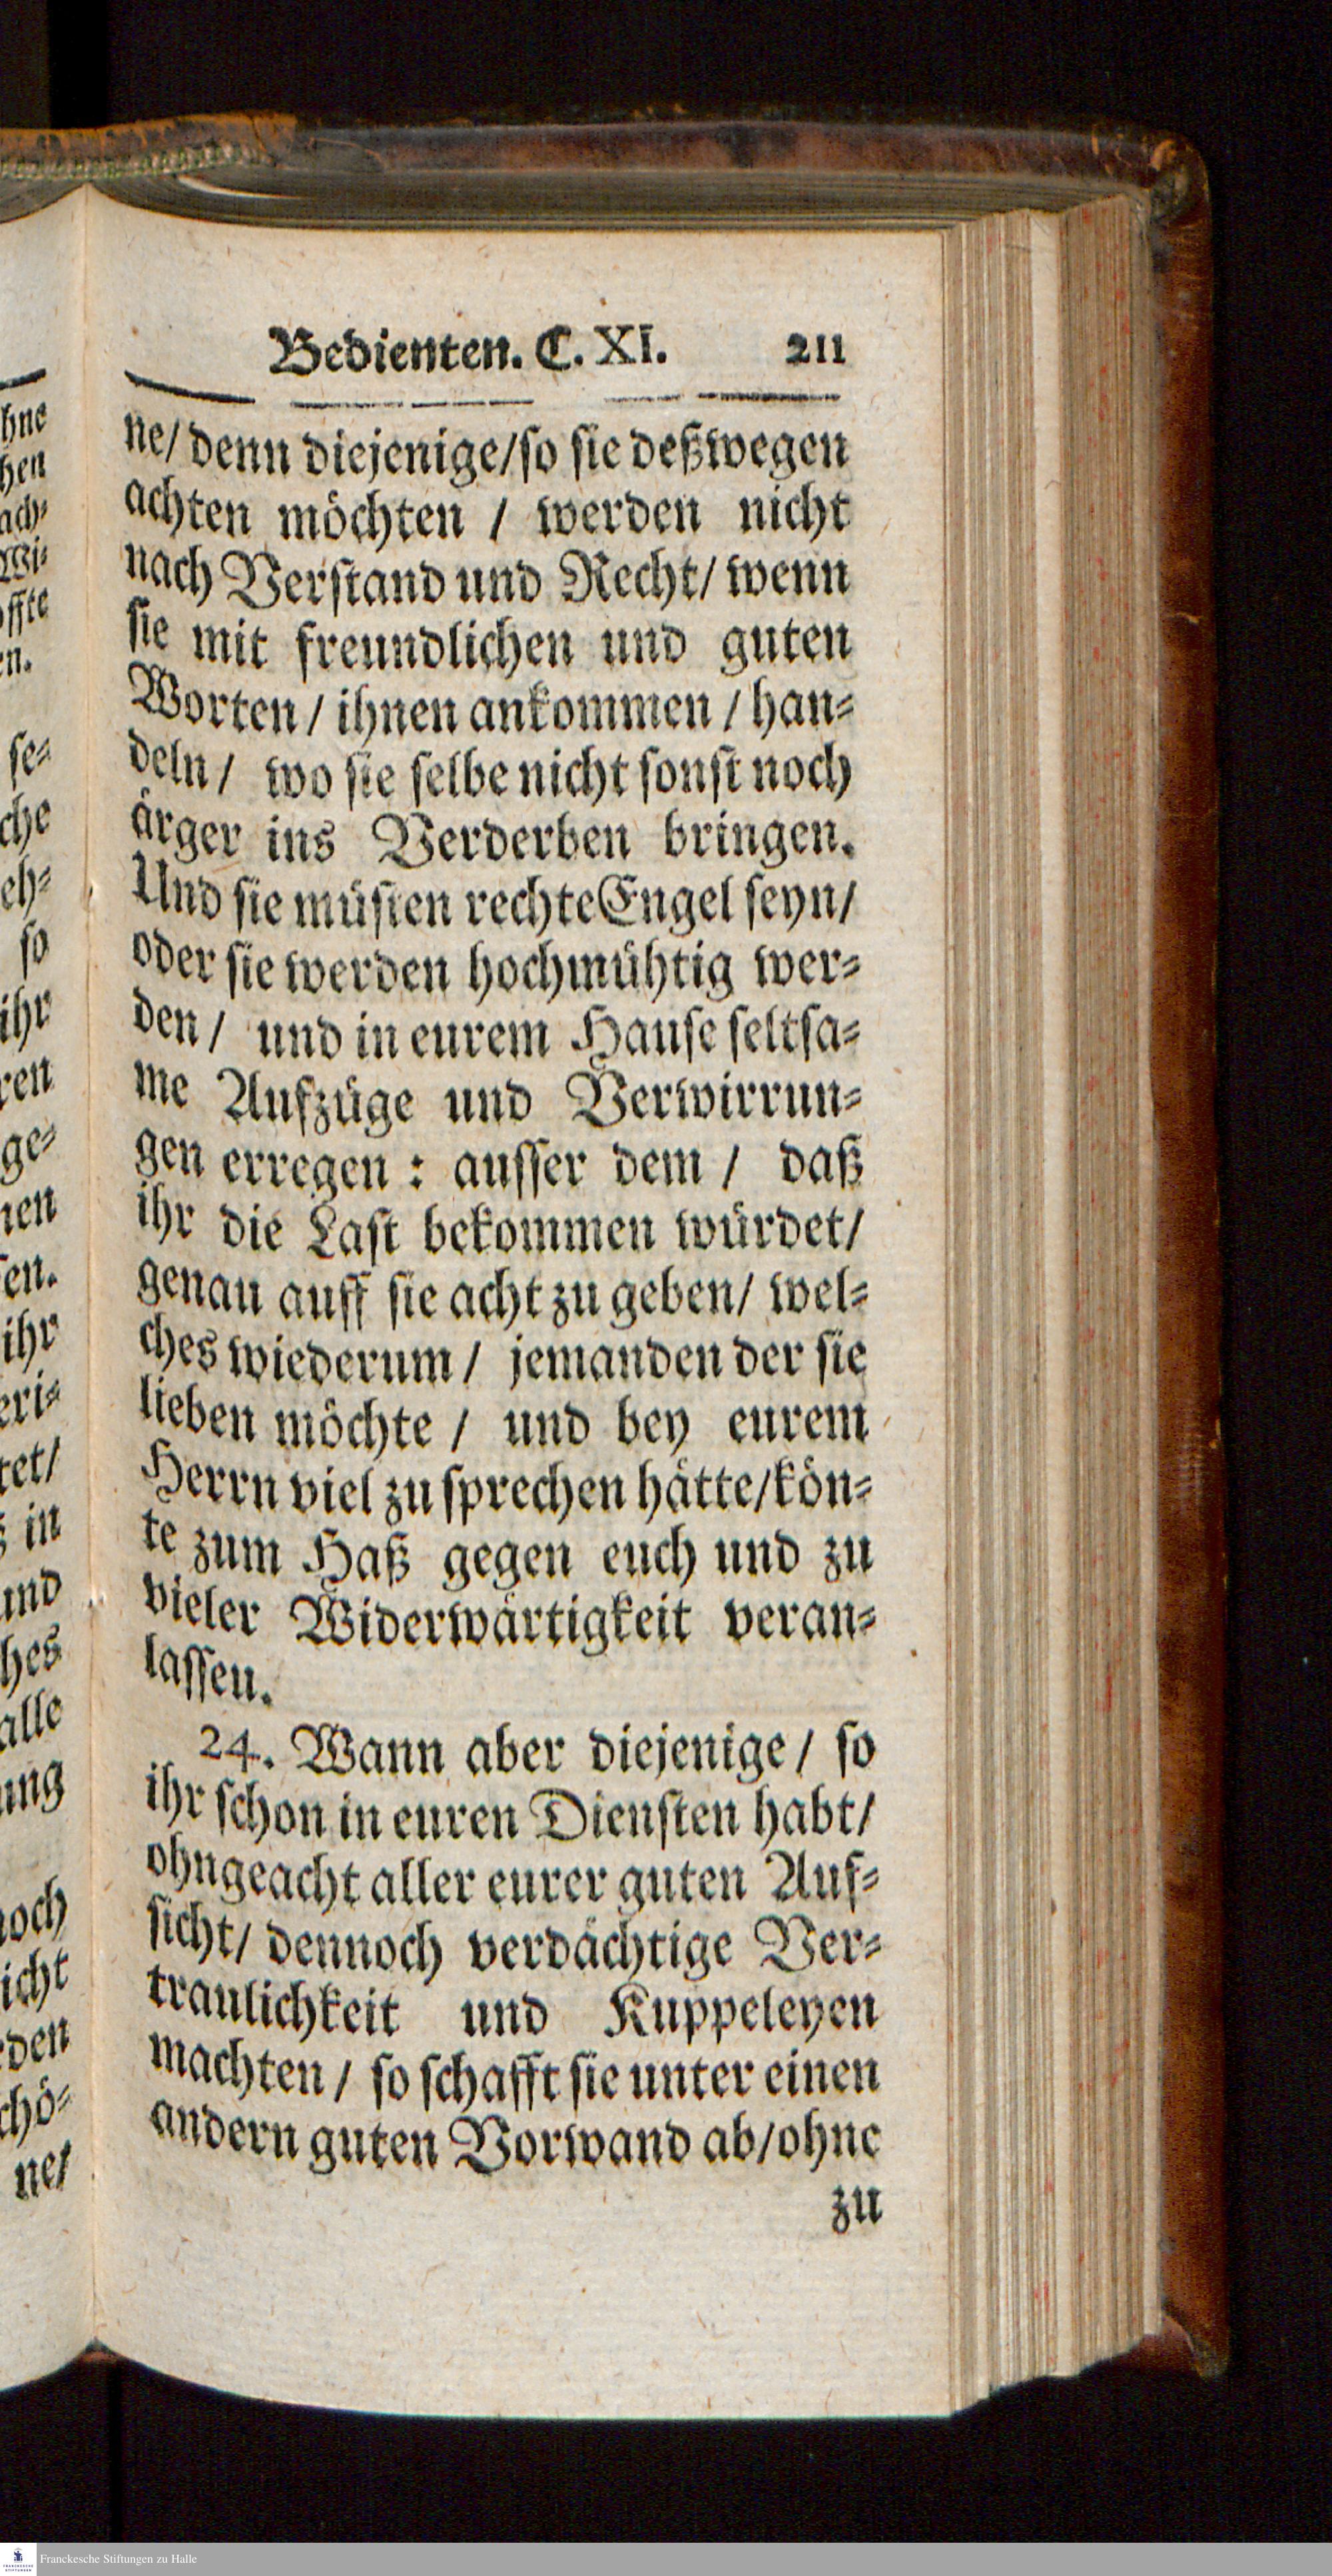 Bedienten. C. XI. 211
ne/ denn diejenige/so sie deßwegen
achten möchten / werden nicht
nach Verstand und Recht/ wenn
sie mit freundlichen und guten
Worten / ihnen ankommen / han-
deln / wo sie selbe nicht sonst noch
ärger ins Verderben bringen.
Und sie müsten rechte Engel seyn/
oder sie werden hochmühtig wer-
den / und in eurem Hause seltsa-
me Aufzüge und Verwirrun-
gen erregen : ausser dem / daß
ihr die Last bekommen würdet/
genau auff sie acht zu geben/ wel-
ches wiederum / jemanden der sie
lieben möchte / und bey eurem
Herrn viel zu sprechen hätte/kön-
te zum Haß gegen euch und zu
vieler Widerwärtigkeit veran-
lassen.
24. Wann aber diejenige / so
ihr schon in euren Diensten habt/
ohngeacht aller eurer guten Auf-
sicht/ dennoch verdächtige Ver-
traulichkeit und Kuppeleyen
machten / so schafft sie unter einen
andern guten Vorwand ab/ohne
zu
Franckesche Stiftungen zu Halle